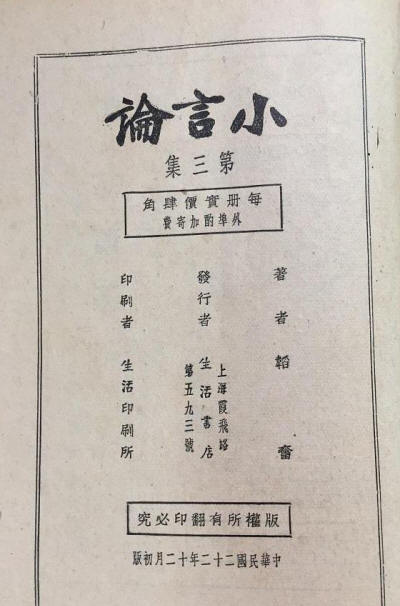 小言論
第三集
每册實價肆角
外埠酌加寄費
著者 韜奮
發行者 生活書店
上海霞飛路
第五九三號
印刷者 生活印刷所
版權所有翻印必究
中華民國二十二年十二月初版